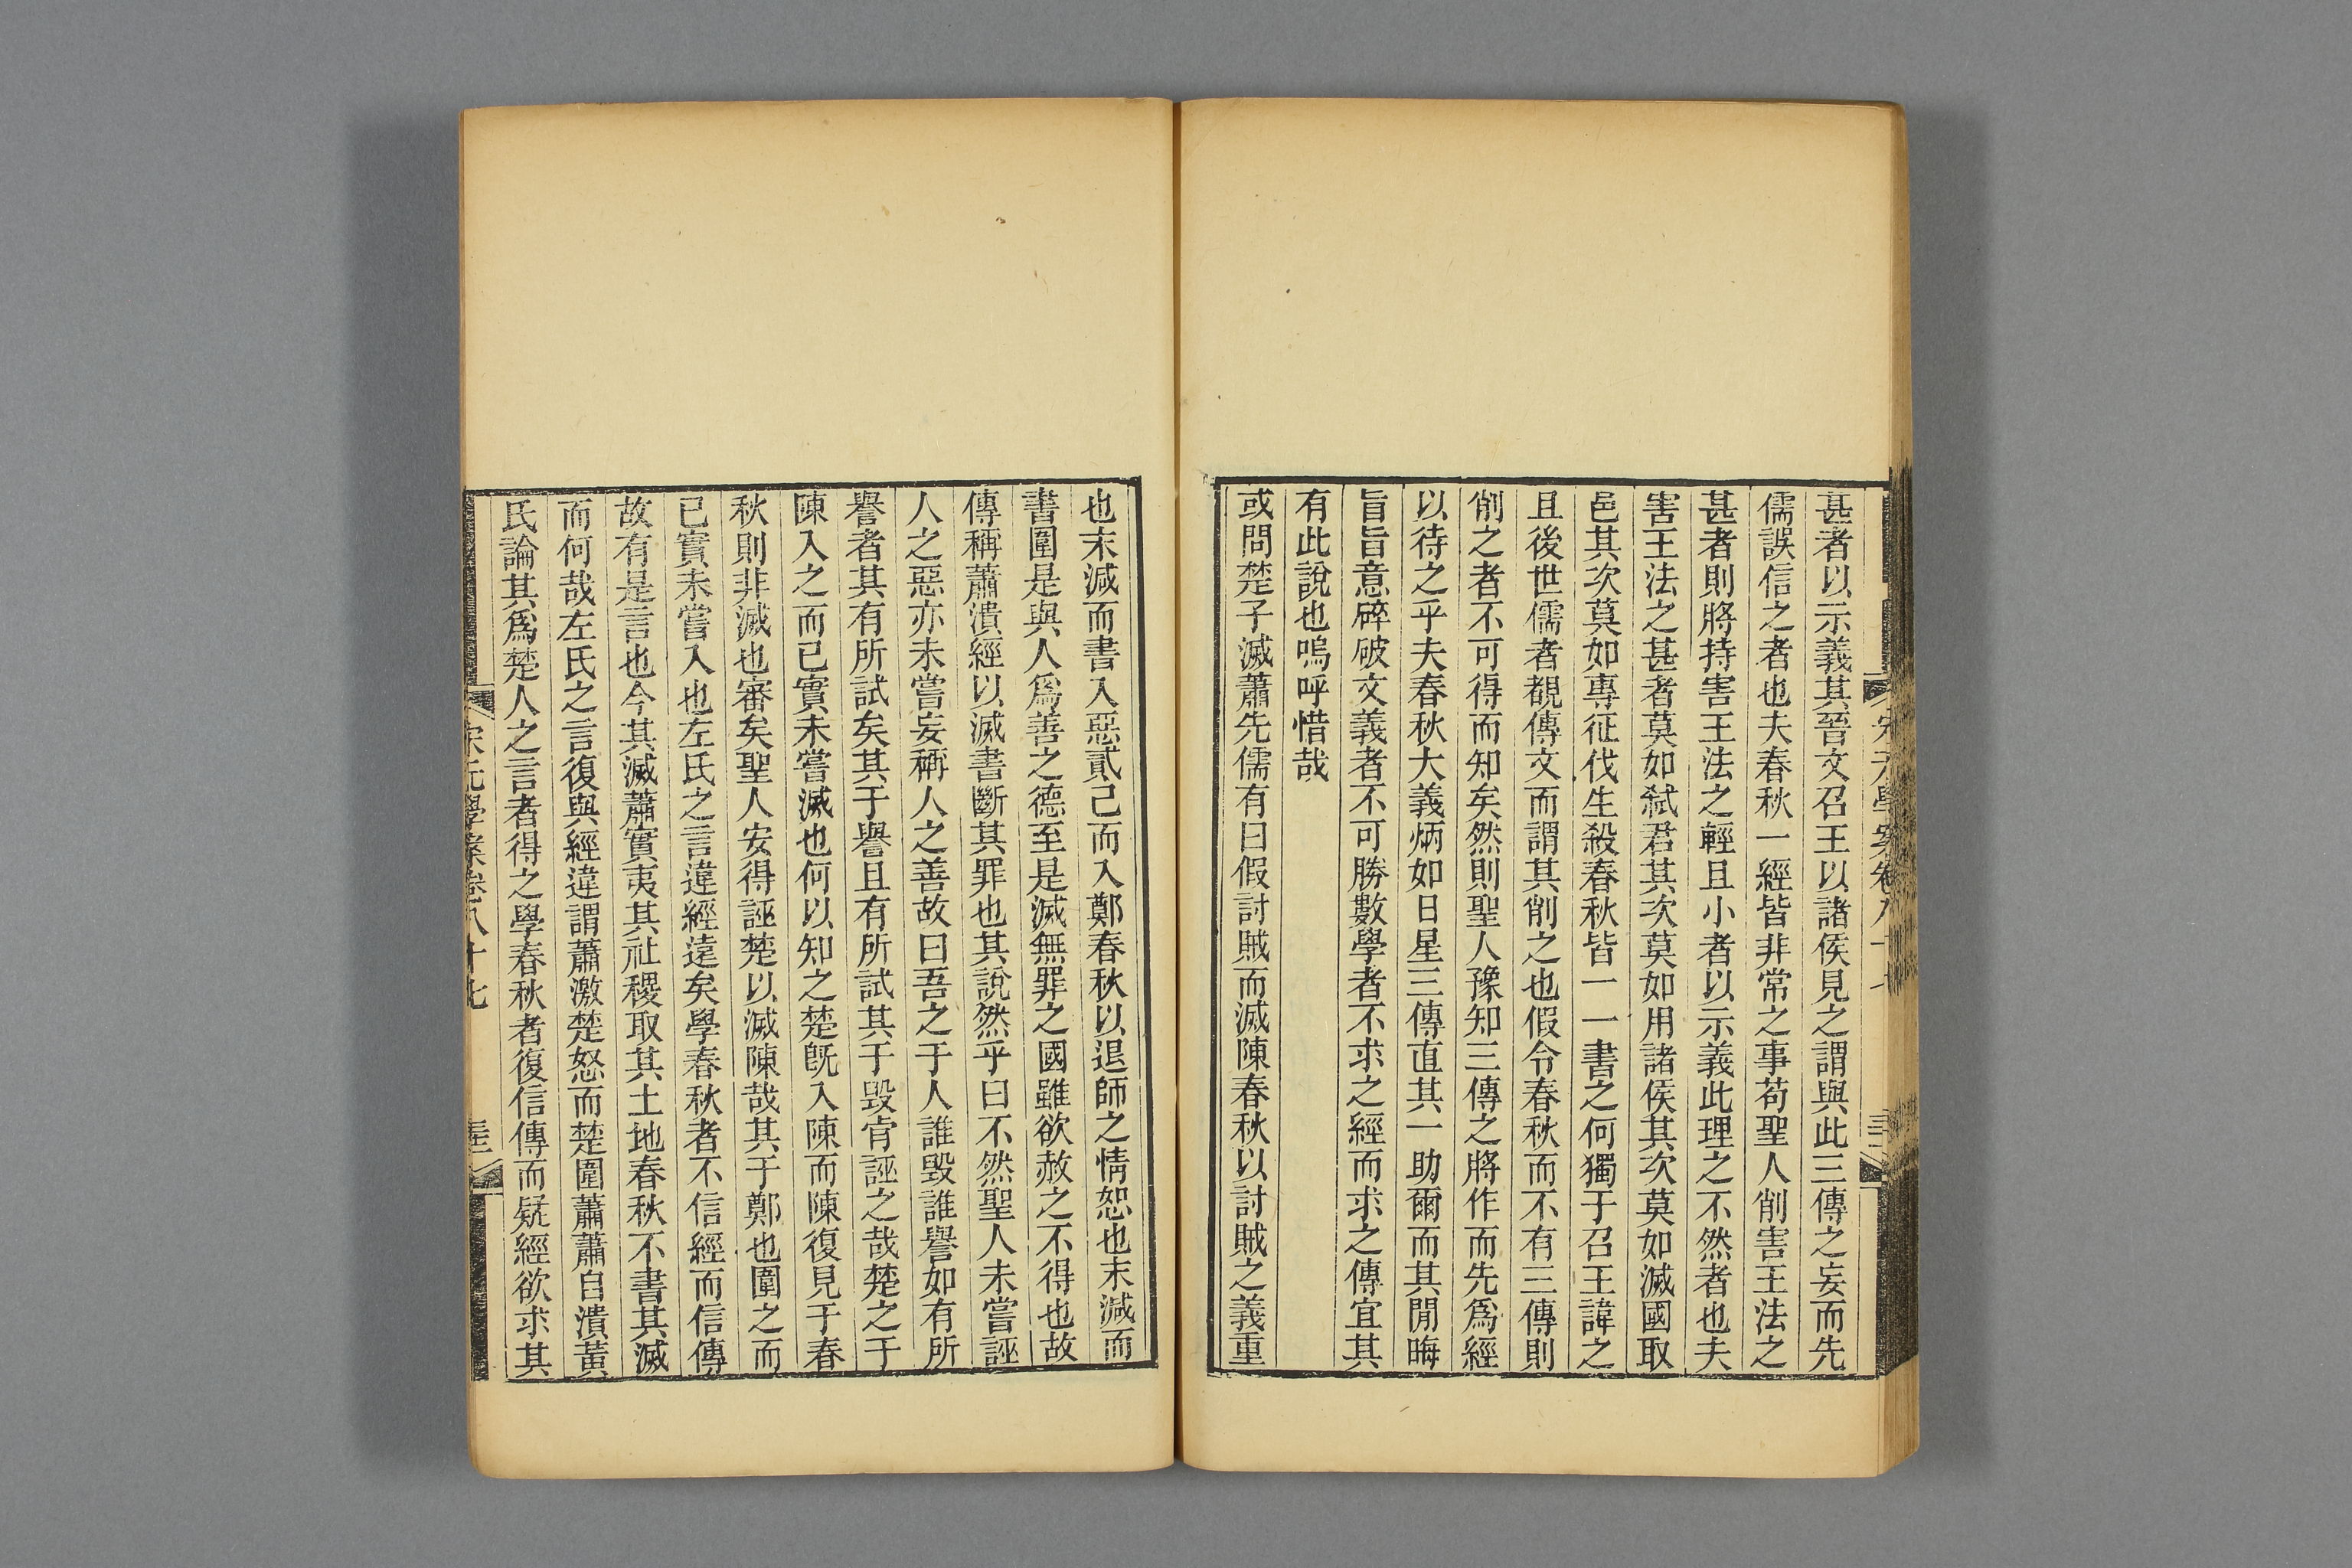 甚者以示義其晉文召王以諸侯見之謂與此三傳之妄而先
儒誤信之者也夫春秋一經皆非常之事苟聖人削害王法之
甚者則將持害王法之輕且小者以示義此理之不然者也夫
害王法之甚者莫如弑君其次莫如用諸侯其次莫如滅國取
邑其次莫如專征伐生殺春秋皆一一書之何獨于召王諱之
且後世儒者覩傳文而謂其削之也假令春秋而不有三傳則
削之者不可得而知矣然則聖人豫知三傳之將作而先爲經
以待之乎夫春秋大義炳如日星三傳直其一助爾而其閒晦
旨旨意碎破文義者不可勝數學者不求之經而求之傳宜其
有此說也嗚呼惜哉
或問楚子滅蕭先儒有曰假討賊而滅陳春秋以討賊之義重
也末減而書入惡貳己而入鄭春秋以退師之情恕也末減而
書圍是與人爲善之德至是滅無罪之國雖欲赦之不得也故
傳稱蕭潰經以滅書斷其罪也其說然乎曰不然聖人未嘗誣
人之惡亦未嘗妄稱人之善故曰吾之于人誰毀誰譽如有所
譽者其有所試矣其于譽且有所試其于毀肯誣之哉楚之于
陳入之而已實未嘗滅也何以知之楚旣入陳而陳復見于春
秋則非滅也審矣聖人安得誣楚以滅陳哉其于鄭也圍之而
已實未嘗入也左氏之言違經遠矣學春秋者不信經而信傳
故有是言也今其滅蕭實夷其社稷取其土地春秋不書其滅
而何哉左氏之言復與經違謂蕭激楚怒而楚圍蕭蕭自潰黃
氏論其爲楚人之言者得之學春秋者復信傳而疑經欲求其
宋元學案卷八十七